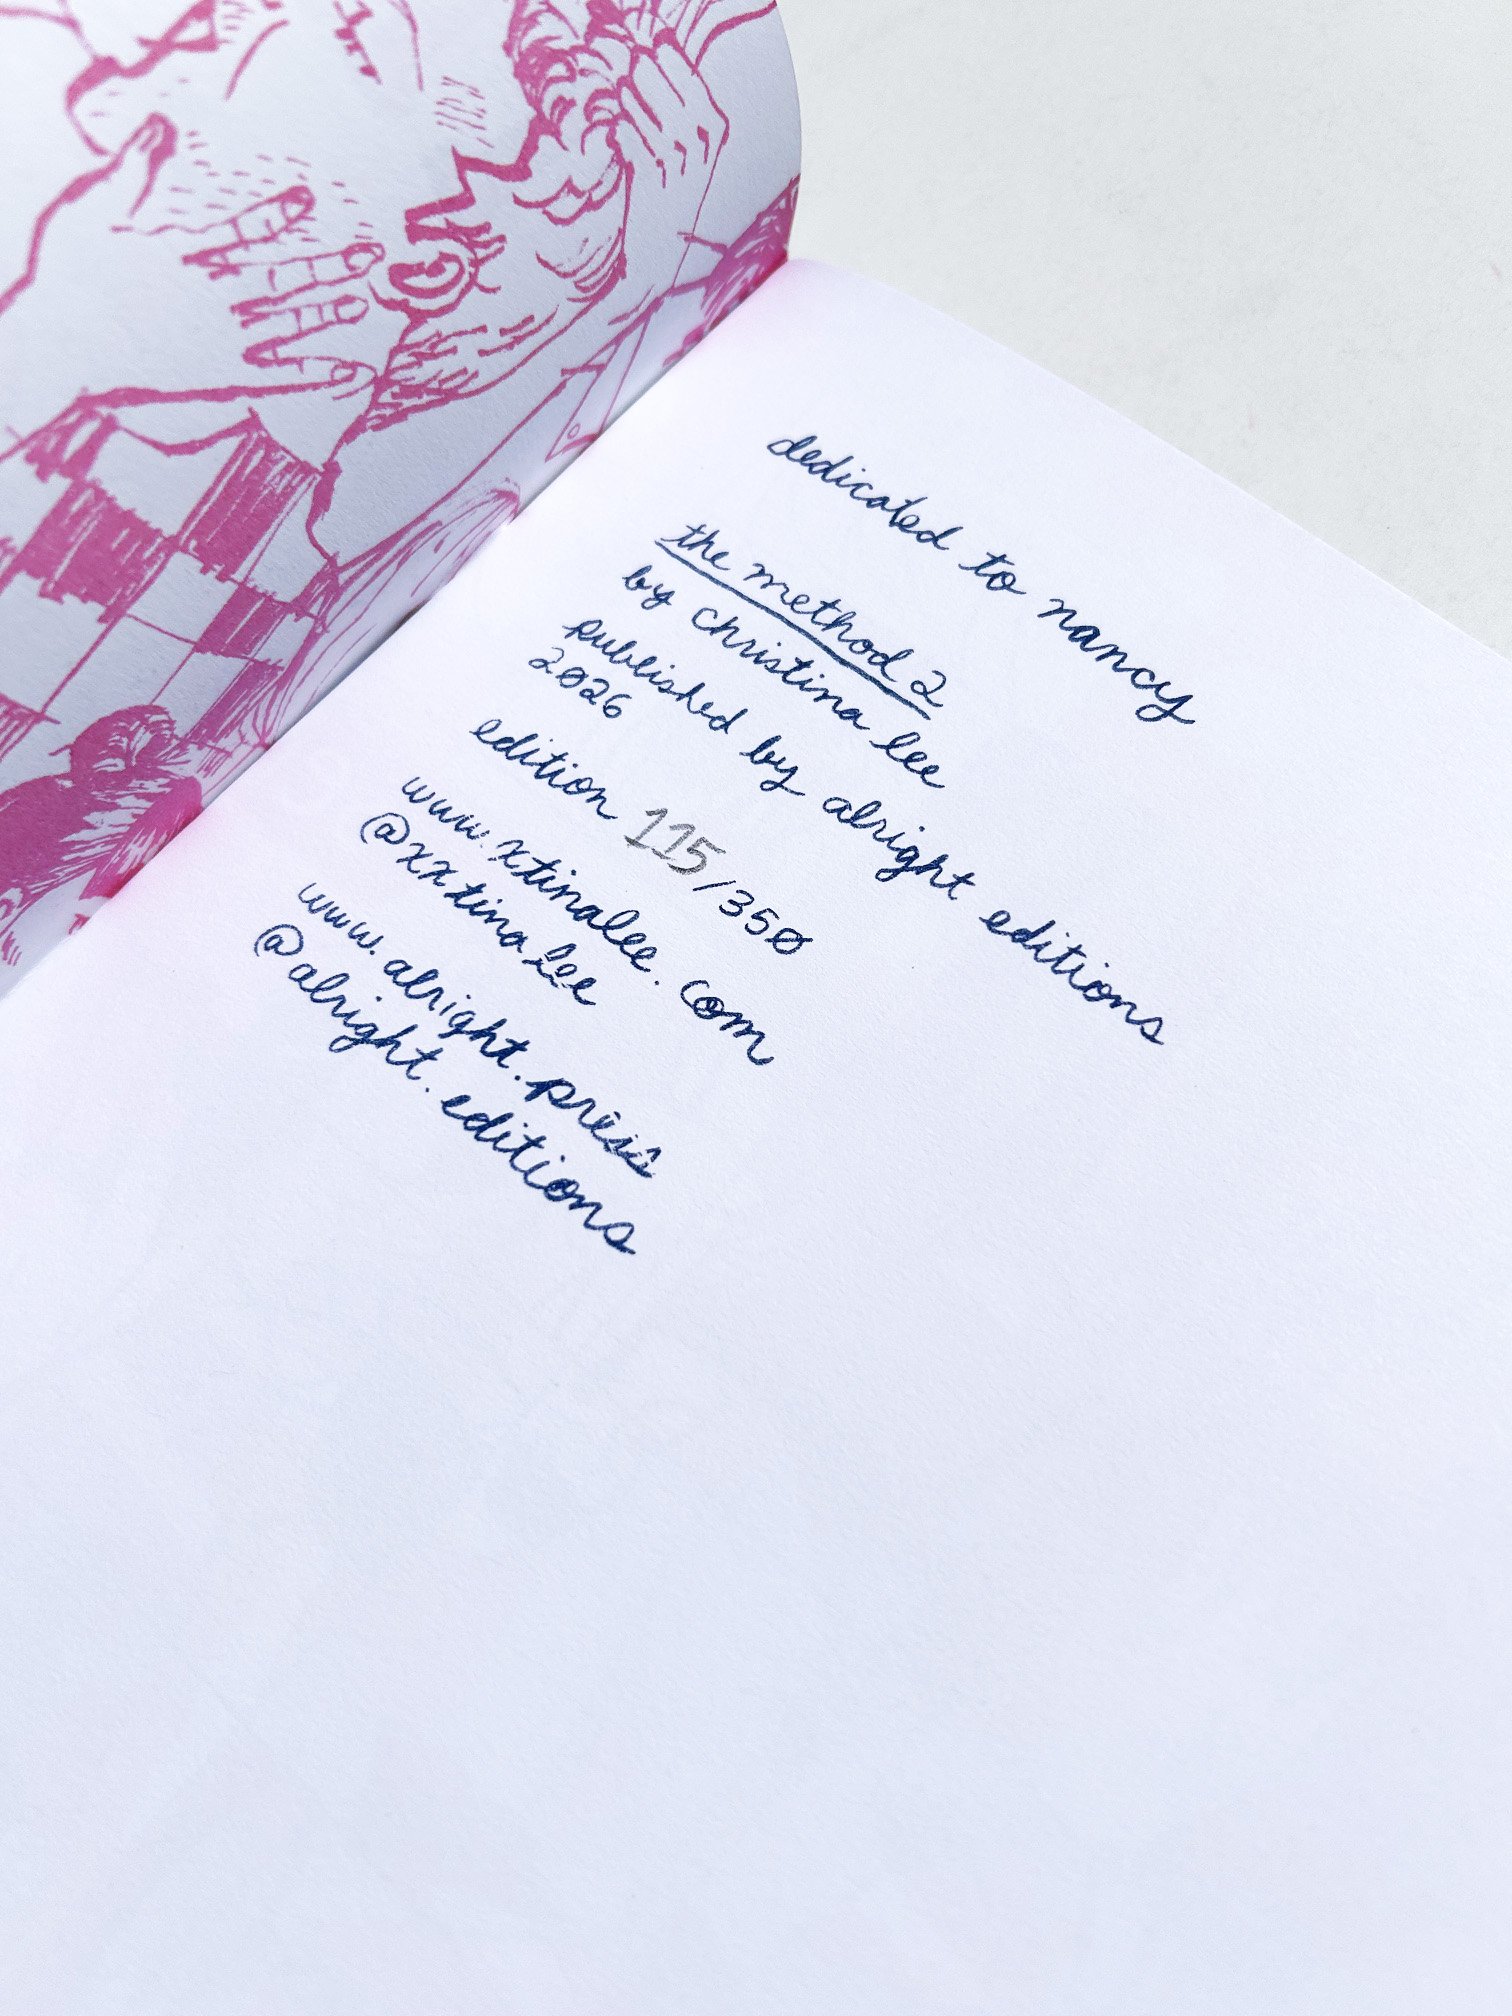 dedicated to nancy
the method 2
by christina lee
published by alright editions
2026
edition 115/350
www.xtinalee.com
@xxtinalee
www.alright.press
@alright.editions